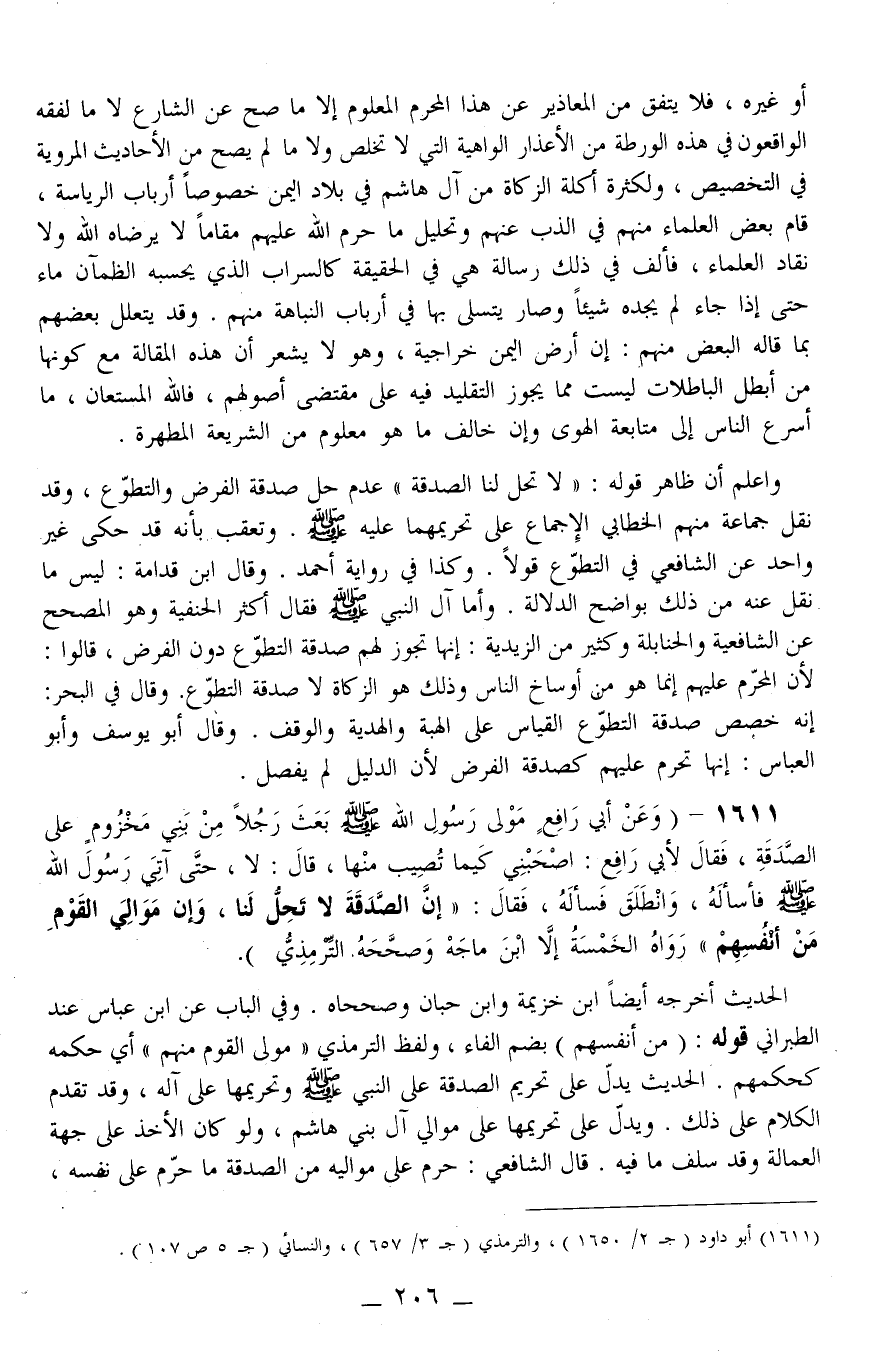 أو غيره ، فلا يتفق من المعاذير عن هذا المحرم المعلوم إلا ما صح عن الشارع لا ما لفقه
الواقعون في هذه الورطة من الأعذار الواهية التي لا تخلص ولا ما لم يصح من الأحاديث المروية
في التخصيص ، ولكثرة أكلة الزكاة من آل هاشم في بلاد اليمن خصوصاً أرباب الرياسة ،
قام بعض العلماء منهم في الذب عنهم وتحليل ما حرم الله عليهم مقاماً لا يرضاه الله ولا
نقاد العلماء ، فألف في ذلك رسالة هي في الحقيقة كالسراب الذي يحسبه الظمآن ماء
حتى إذا جاء لم يجده شيئاً وصار يتسلى بها في أرباب النباهة منهم . وقد يتعلل بعضهم
بما قاله البعض منهم : إن أرض اليمن خراجية ، وهو لا يشعر أن هذه المقالة مع كونها
من أبطل الباطلات ليست مما يجوز التقليد فيه على مقتضى أصولهم ، فالله المستعان ، ما
أسرع الناس إلى متابعة الهوى وإن خالف ما هو معلوم من الشريعة المطهرة .
واعلم أن ظاهر قوله : « لا تحل لنا الصدقة » عدم حل صدقة الفرض والتطوّع ، وقد
نقل جماعة منهم الخطابي الإجماع على تحريمهما عليه ﷺ . وتعقب بأنه قد حكى غير
واحد عن الشافعي في التطوّع قولاً . وكذا في رواية أحمد . وقال ابن قدامة : ليس ما
نقل عنه من ذلك بواضح الدلالة . وأما آل النبي ﷺ فقال أكثر الحنفية وهو المصحح
عن الشافعية والحنابلة وكثير من الزيدية : إنها تجوز لهم صدقة التطوّع دون الفرض ، قالوا :
لأن المحرّم عليهم إنما هو من أوساخ الناس وذلك هو الزكاة لا صدقة التطوّع. وقال في البحر:
إنه خصص صدقة التطوّع القياس على الهبة والهدية والوقف . وقال أبو يوسف وأبو
العباس : إنها تحرم عليهم كصدقة الفرض لأن الدليل لم يفصل .
١٦١١ – ( وَعَنْ أبي رَافِعٍ مَوْلى رَسُولِ الله ﷺ بَعَثَ رَجُلاً مِنْ بَنِي مَخْزُومٍ على
الصَّدَقَةِ ، فَقالَ لأبي رَافِعٍ : اصْحَبْنِي كَيما تُصِيب منْها ، قالَ : لا ، حتَّى آتِيَ رَسُولَ الله
ﷺ فأسألَهُ ، وَانْطَلَقَ فَسألَهُ ، فَقالَ : « إنَّ الصَّدَقَةَ لا تَحِلُّ لَنا ، وَإن مَوَالِيَ القَوْمِ
مَنْ أنْفُسِهِمْ » رَوَاهُ الخَمْسَةُ إلَّا ابْنَ ماجَهْ وَصحَّحَهُ التِّرْمِذِيُّ ).
الحديث أخرجه أيضاً ابن خزيمة وابن حبان وصححاه . وفي الباب عن ابن عباس عند
الطبراني قوله : ( من أنفسهم ) بضم الفاء ، ولفظ الترمذي « مولى القوم منهم » أي حكمه
كحكمهم . الحديث يدلّ على تحريم الصدقة على النبي ﷺ وتحريمها على آله ، وقد تقدم
الكلام على ذلك . ويدلّ على تحريمها على موالي آل بني هاشم ، ولو كان الأخذ على جهة
العمالة وقد سلف ما فيه . قال الشافعي : حرم على مواليه من الصدقة ما حرّم على نفسه ،
(١٦١١) أبو داود ( جـ ٢/ ١٦٥٠ ) ، والترمذي ( جـ ٣/ ٦٥٧ ) ، والنسائي ( جـ ٥ ص ١٠٧ ) .
– ٢٠٦ –